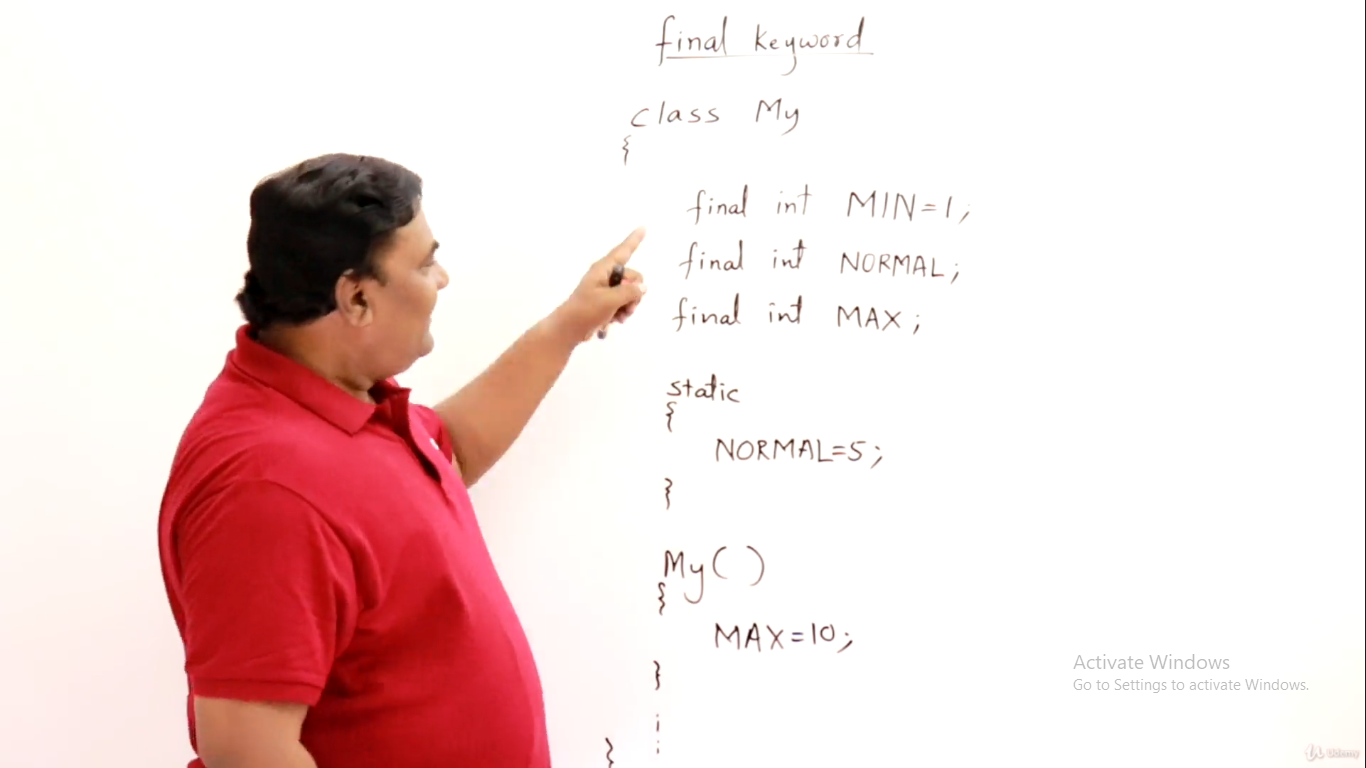 final keyword
class My
{
final int MIN=1;
final int NORMAL;
final int MAX;
static
{
NORMAL=5;
}
My( )
{
MAX=10;
}
}
Activate Windows
Go to Settings to activate Windows.
Udemy